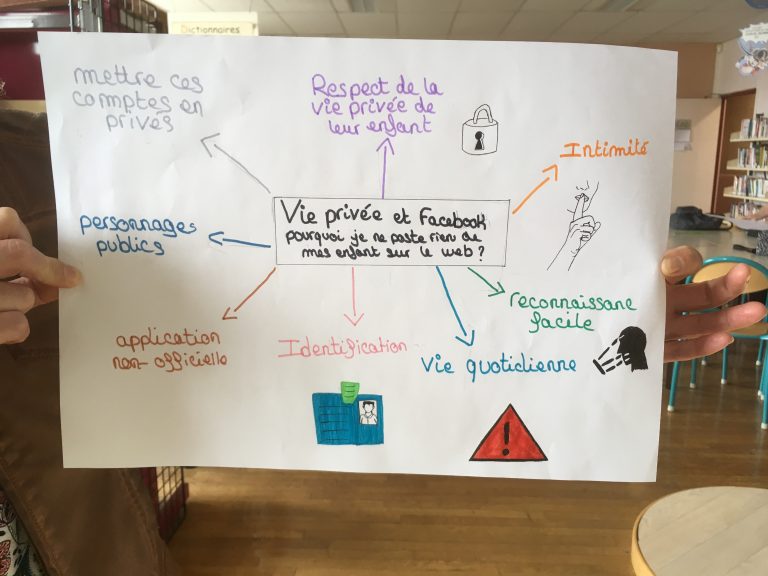 Dictionnaires
mettre ces
comptes en
privés
Respect de la
vie privée de
leur enfant
Intimité
Vie privée et Facebook
pourquoi je ne poste rien de
mes enfant sur le web ?
personnages
publics
reconnaissane
facile
application
non-officielle
Identification
Vie quotidienne